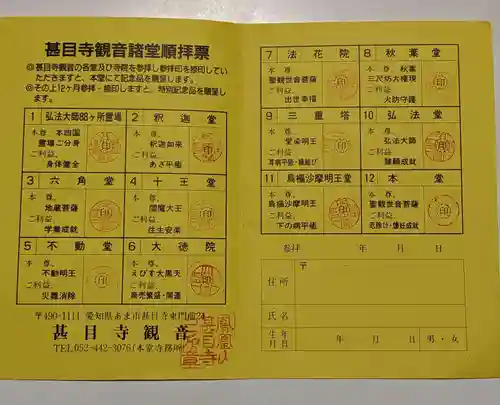 甚目寺観音諸堂順拝票
◎甚目寺観音の各堂及び寺院を参拝し参拝印を捺印してい
ただきますと、本堂にて記念品を贈呈します。
◎その上12ヶ月参拝・捺印しますと、特別記念品を贈呈し
ます。
1 弘法大師88ヶ所霊場
本尊 本四国
霊場ご分身
ご利益
身体健全
印
2 釈迦堂
本尊
釈迦如来
ご利益
あざ平癒
3 六角堂
本尊
地蔵菩薩
ご利益
学業成就
印
4 十王堂
本尊
閻魔大王
ご利益
往生安楽
印
5 不動堂
本尊
不動明王
ご利益
災難消除
印
6 大徳院
本尊
えびす大黒天
ご利益
商売繁盛・開運
〒490-1111 愛知県あま市甚目寺東門前24
甚目寺観音
TEL052-442-3076(本堂寺務所)
鳳凰山
甚目寺
7 法花院
本尊
聖観世音菩薩
ご利益
出世幸福
印
8 秋葉堂
本尊 秋葉
三尺坊大権現
ご利益
火防守護
印
9 三重塔
本尊
愛染明王
ご利益
耳病平癒・縁結び
印
10 弘法堂
本尊
弘法大師
ご利益
諸願成就
11 烏樞沙摩明王堂
本尊
烏樞沙摩明王
ご利益
下の病平癒
印
12 本堂
本尊
聖観世音菩薩
ご利益
厄除け・諸願成就
印
参拝 年 月 日
住所
〒
氏名
生年
月日
年 月 日
男・女